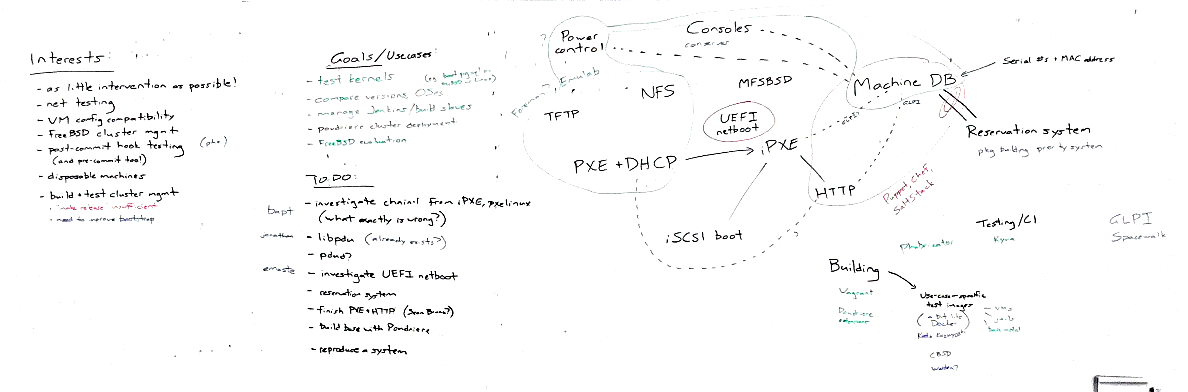 Interests:
- as little intervention as possible!
- net testing
- VM config compatibility
- FreeBSD cluster mgmt
- post-commit hook testing (phk)
(and pre-commit too!)
- disposable machines
- build + test cluster mgmt
- make release insufficient
- need to improve bootstrap
Goals/Usecases:
- test kernels
- compare versions, OSes
- manage Jenkins/build slaves
- poudriere cluster deployment
- FreeBSD evaluation
TODO:
bapt
- investigate chain-l from iPXE, pxelinux
(what exactly is wrong?)
jonathan
- libpdu (already exists?)
- pdud?
emaste
- investigate UEFI netboot
- reservation system
- finish PXE+HTTP (Sean Bruno?)
- build base with Poudriere
- reproduce a system
? Power
control
Consoles
conserver
Foreman?, Emulab
NFS
MFSBSD
TFTP
UEFI
netboot
PXE + DHCP
iPXE
HTTP
iSCSI boot
Machine DB
GLPI
Serial #s + MAC address
Reservation system
pkg building priority system
Puppet, Chef,
SaltStack
Testing/CI
Phabricator
Kyua
GLPI
Spacewalk
Building
Vagrant
Poudriere
Use-case-specific
test images
(a bit like
Docker)
- VMs
- jails
- bare metal
CBSD
Warden?